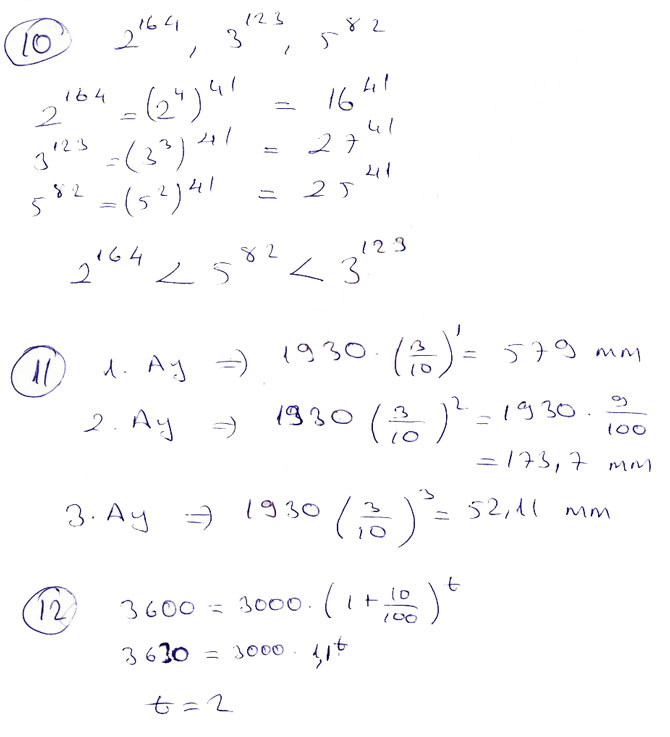 10 2^164, 3^123, 5^82
2^164 = (2^4)^41 = 16^41
3^123 = (3^3)^41 = 27^41
5^82 = (5^2)^41 = 25^41
2^164 < 5^82 < 3^123
11 1. Ay ⇒ 1930 · (3/10)^1 = 579 mm
2. Ay ⇒ 1930 (3/10)^2 = 1930 · 9/100
= 173,7 mm
3. Ay ⇒ 1930 (3/10)^3 = 52,11 mm
12 3600 = 3000 · (1 + 10/100)^t
3630 = 3000 · 1,1^t
t = 2